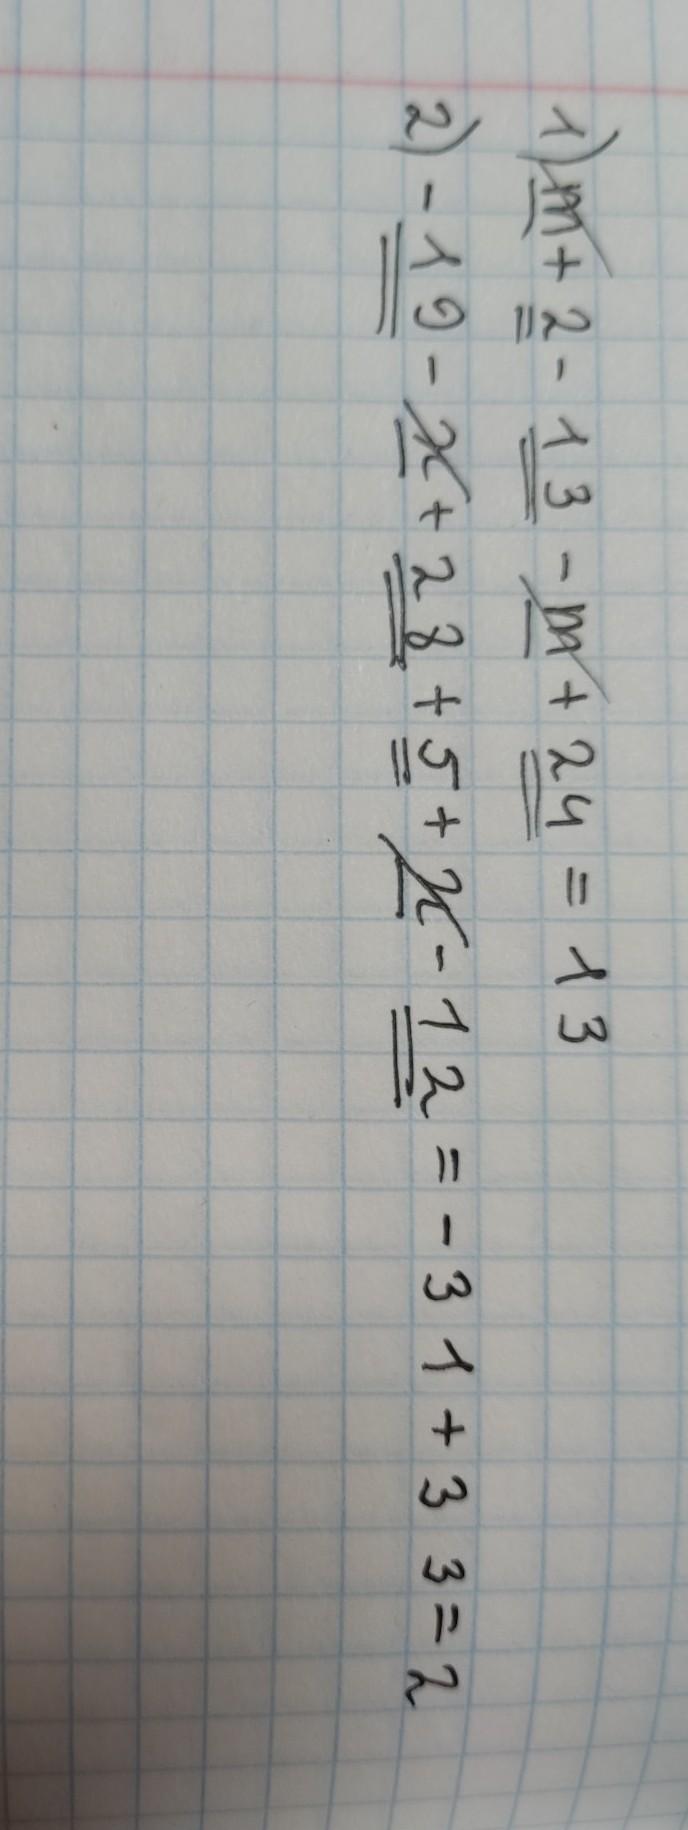 1) m + 2 - 13 - m + 24 = 13
2) - 19 - x + 28 + 5 + x - 12 = - 31 + 33 = 2